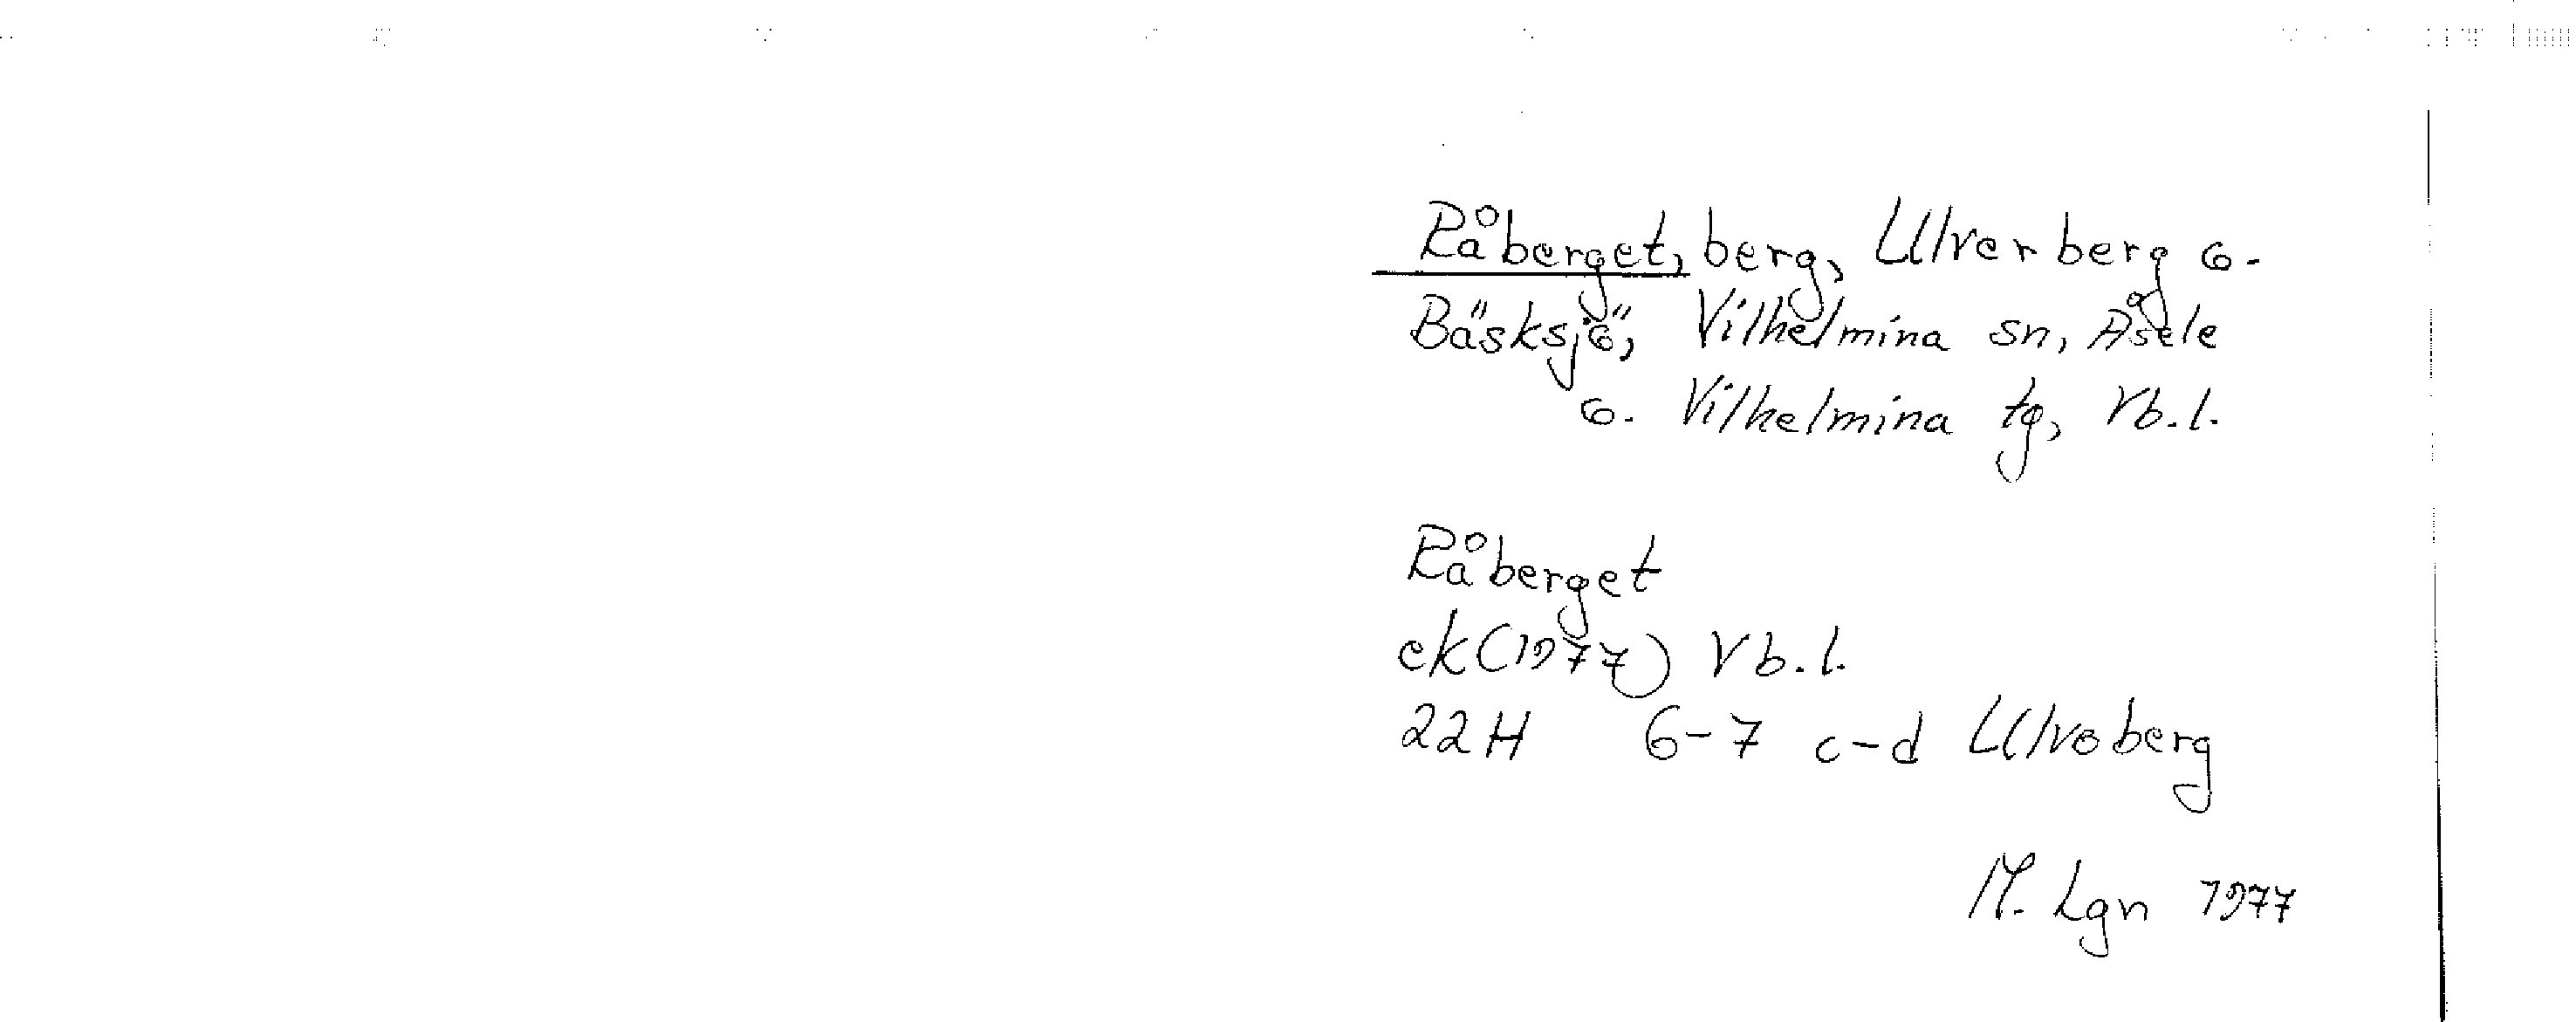 Råberget, berg, Ulverberg o.
Bäsksjö, Vilhelmina sn, Åsele
o. Vilhelmina tg, Vb.l.
Råberget
ek (1977) Vb.l.
22H 6-7 c-d Ulvoberg
M. Lgn 1977